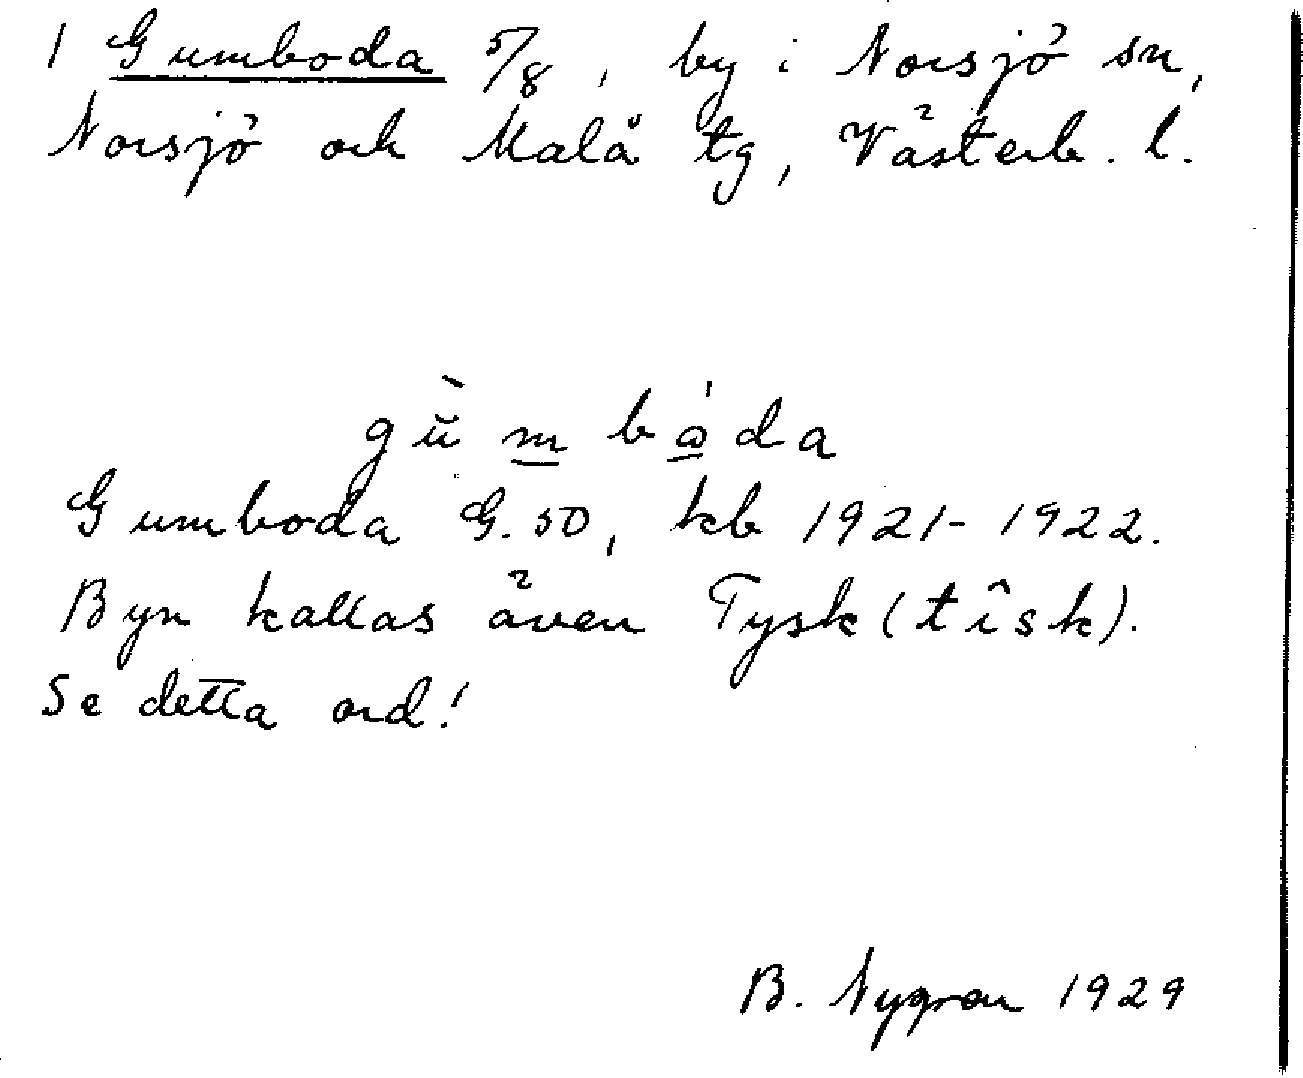 1 Gumboda 5/8, by i Norsjö sn,
Norsjö och Malå tg, Västerb. l.
gŭ̀m båda
Gumboda G. 50, kb 1921-1922.
Byn kallas även Tysk (tîsk).
Se detta ord!
B. Nygren 1929